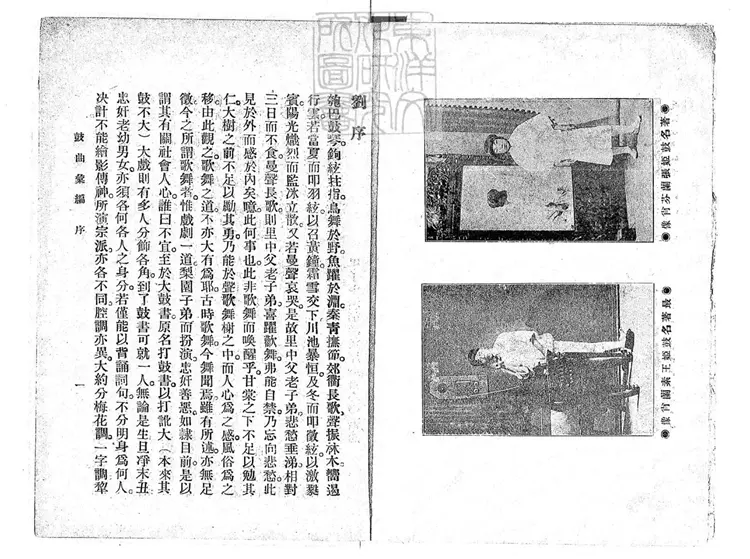 劉序
瓠巴鼓琴。鉤絃拄指。鳥舞於野。魚躍於淵。秦青撫節。郊衢長歌。聲振林木。響遏
行雲。若當夏而叩羽絃。以召黃鐘。霜雪交下。川池暴恒。及冬而叩徵絃。以激蕤
賓。陽光熾烈。而監冰立散。又若曼聲哀哭。是故里中父老子弟。悲愁垂涕。相對
三日而不食。曼聲長歌。則里中父老子弟。喜躍歡舞。弗能自禁。乃忘向悲愁。此
見於外而感於內矣。噫。此何事也。此非歌舞而喚醒乎。甘棠之下。不足以勉其
仁。大樹之前。不足以勛其勇。乃能於聲歌舞榭之中。而人心為之感。風俗為之
移。由此觀之。歌舞之道。不亦大有為耶。古時歌舞。今舞聞焉。雖有所遺。亦無足
徵。今之所謂歌舞者。惟戲劇一道。梨園子弟。而扮演忠奸善惡。如隸目前。是以
謂其有關社會人心。誰曰不宜。至於大鼓書。原名打鼓書。以打訛大（本來其
鼓不大）大戲則有多人分飾各角。到了鼓書。可就一人。無論是生旦凈末丑
忠奸老幼男女。亦須各何各人之身分。若僅能以背誦詞句。不分明身為何人。
决計不能繪影傳神。所演宗派。亦各不同。腔調亦異。大約分梅花調。一字調。犂
鼓曲彙編 序
一
◉著名鼓姬張蘭芬肖像◉
◉最著名鼓姬王素蘭肖像◉